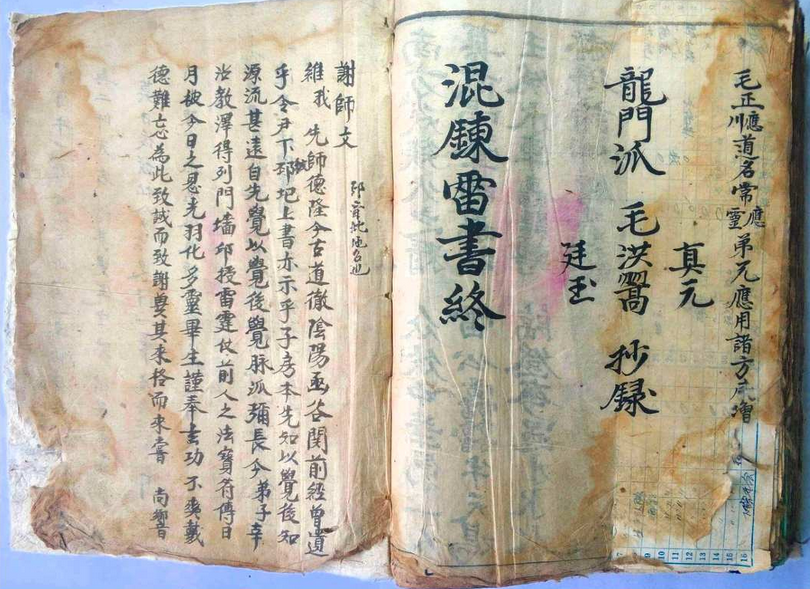 毛正川應道名常靈應弟元應用諸方
真元
龍門派 毛洪 抄錄
廷玉
混鍊雷書終
謝師文
地名也
維我 先師德隆今古道徹陰陽函谷関前經曾遺
乎令尹下邳圯上書亦示乎子房本先知以覺後知
源流甚遠自先覺以覺後覺脉派彌長今弟子幸
教澤得列門墻授雷霆仗前人之法寶符傳日
月披今日之恩光羽化多靈畢生謹奉玄功不爽戴
德難忘為此致誠而致謝其來格而來嘗 尚饗
9
10
11
12
13
14
15
16